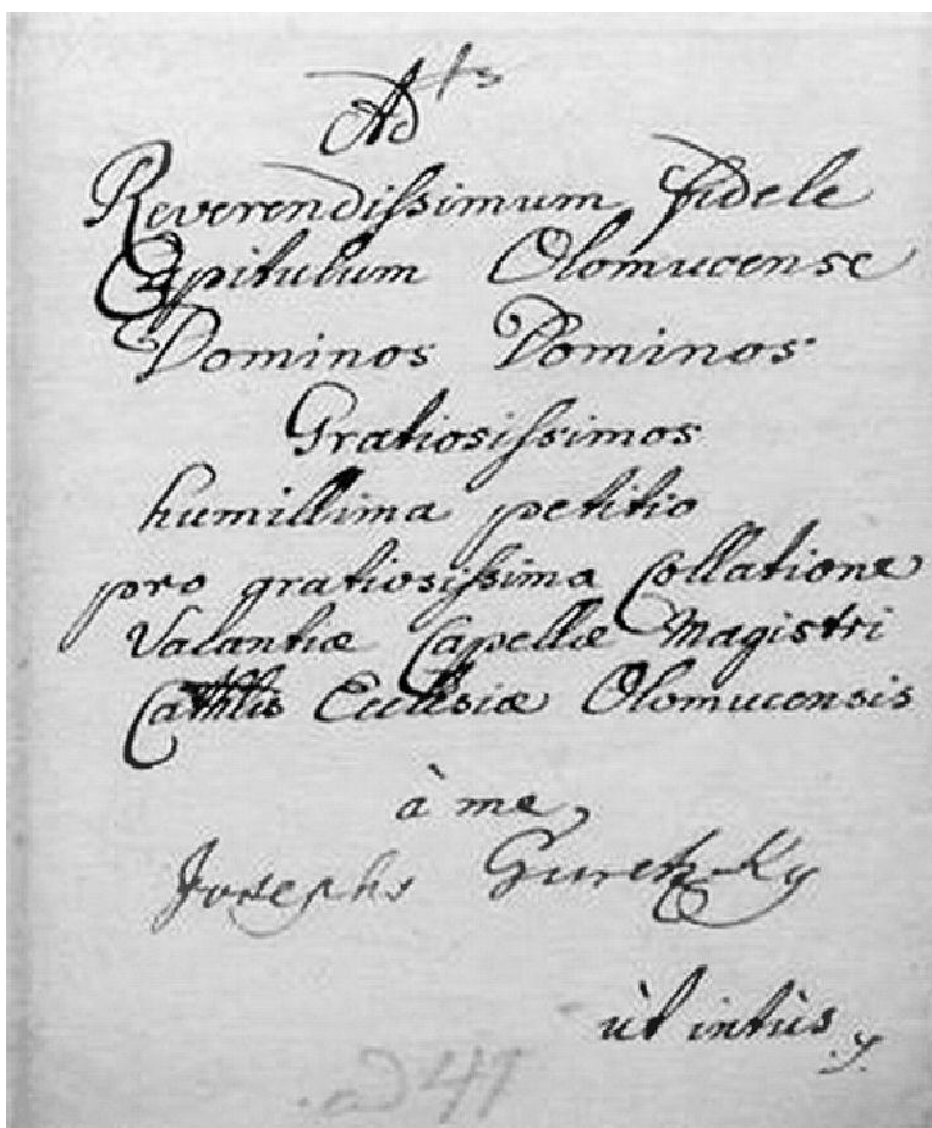 Ad
Reverendissimum fidele
Capitulum Olomucense
Dominos Dominos
Gratiosissimos
humillima petitio
pro gratiosissima Collatione
Vacantiæ Capellæ Magistri
Cathlis Ecclesiæ Olomucensis
à me
Josepho Guretzky
ùt intùs
ad 41